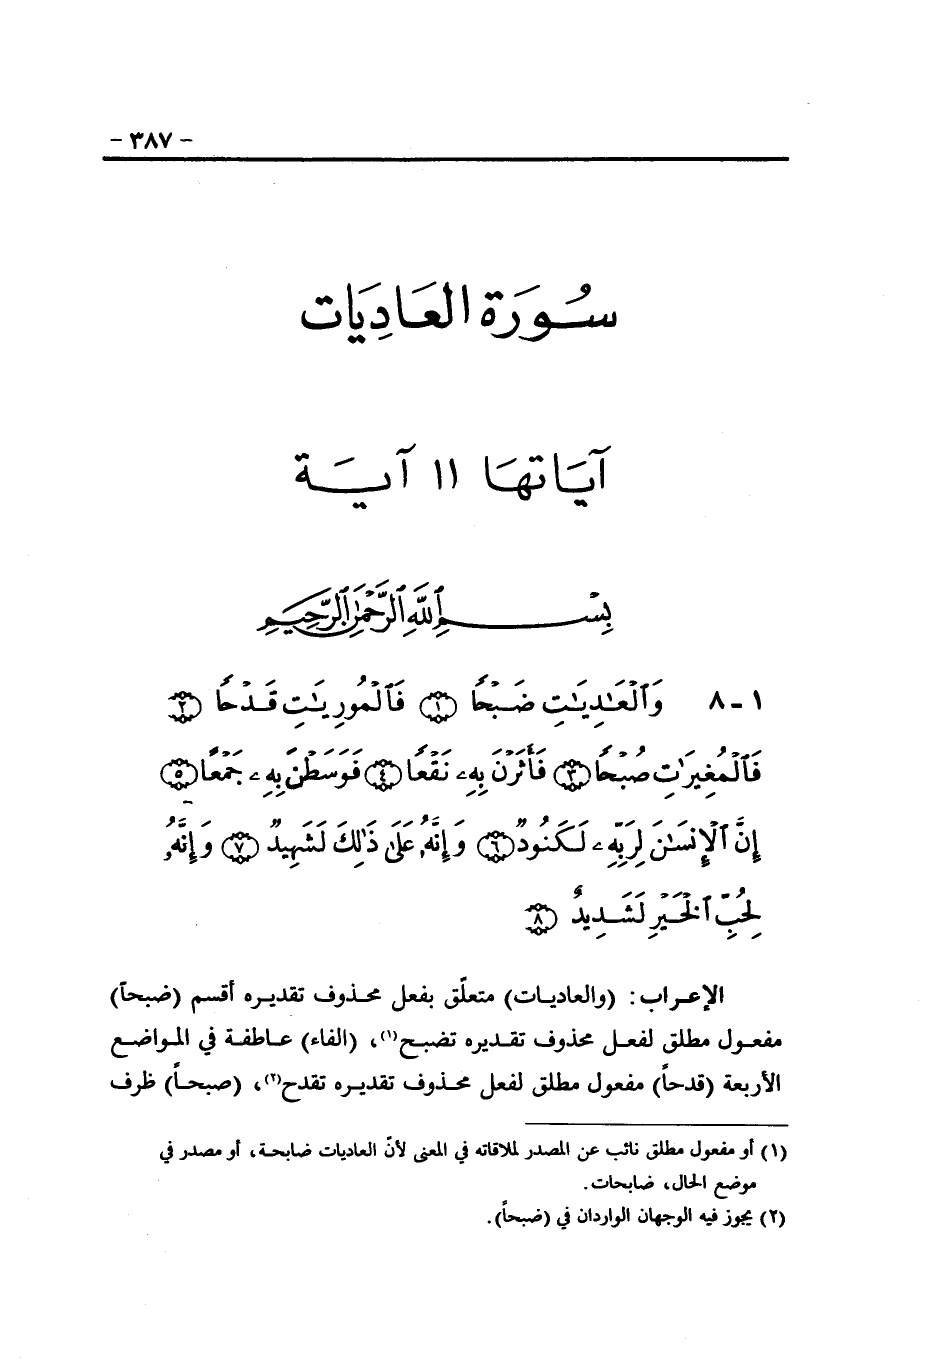 - ٣٨٧ -
سُورَة العَادِيَات
آيَاتهَا ١١ آيَة
بِسْمِ ٱللَّهِ ٱلرَّحْمَٰنِ ٱلرَّحِيمِ
١ - ٨ وَٱلْعَٰدِيَٰتِ ضَبْحًا ﴿١﴾ فَٱلْمُورِيَٰتِ قَدْحًا ﴿٢﴾
فَٱلْمُغِيرَٰتِ صُبْحًا ﴿٣﴾ فَأَثَرْنَ بِهِۦ نَقْعًا ﴿٤﴾ فَوَسَطْنَ بِهِۦ جَمْعًا ﴿٥﴾
إِنَّ ٱلْإِنسَٰنَ لِرَبِّهِۦ لَكَنُودٌ ﴿٦﴾ وَإِنَّهُۥ عَلَىٰ ذَٰلِكَ لَشَهِيدٌ ﴿٧﴾ وَإِنَّهُۥ
لِحُبِّ ٱلْخَيْرِ لَشَدِيدٌ ﴿٨﴾
الإعراب: (والعاديات) متعلّق بفعل محذوف تقديره أقسم (ضبحاً)
مفعول مطلق لفعل محذوف تقديره تضبح(١)، (الفاء) عاطفة في المواضع
الأربعة (قدحاً) مفعول مطلق لفعل محذوف تقديره تقدح(٢)، (صبحاً) ظرف
(١) أو مفعول مطلق نائب عن المصدر لملاقاته في المعنى لأنّ العاديات ضابحة، أو مصدر في
موضع الحال، ضابحات.
(٢) يجوز فيه الوجهان الواردان في (ضبحاً).